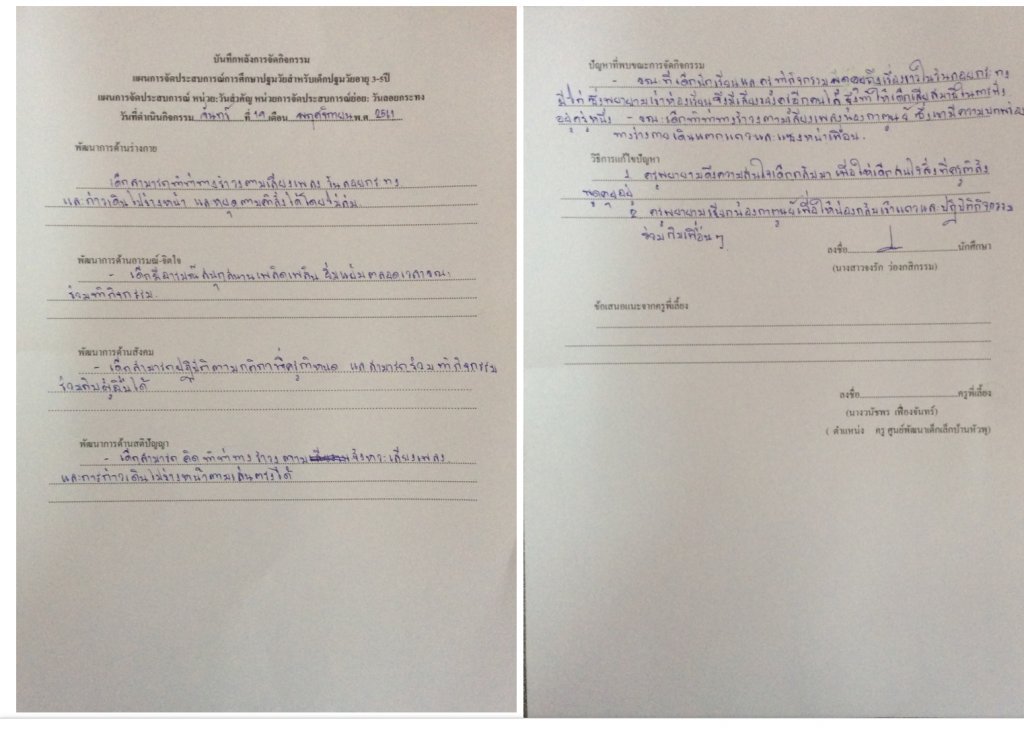 บันทึกหลังการจัดกิจกรรม
แผนการจัดประสบการณ์การศึกษาปฐมวัยสำหรับเด็กปฐมวัยอายุ 3-5ปี
แผนการจัดประสบการณ์ หน่วย:วันสำคัญ หน่วยการจัดประสบการณ์ย่อย: วันลอยกระทง
วันที่ดำเนินกิจกรรม จันทร์ ที่ 19 เดือน พฤศจิกายน พ.ศ. 2561
พัฒนาการด้านร่างกาย
เด็กสามารถทำท่าทางรำวงตามเสียงเพลง วันลอยกระทง
และก้าวเดินไปข้างหน้า และหยุดตามคำสั่งได้โดยไม่ล้ม
พัฒนาการด้านอารมณ์-จิตใจ
- เด็กมีอารมณ์สนุกสนานเพลิดเพลิน ยิ้มแย้มตลอดเวลาขณะ
ร่วมทำกิจกรรม
พัฒนาการด้านสังคม
- เด็กสามารถปฏิบัติตามกติกาที่ครูกำหนด และสามารถร่วมทำกิจกรรม
ร่วมกับผู้อื่นได้
พัฒนาการด้านสติปัญญา
- เด็กสามารถ คิด ทำท่าทาง รำวง ตาม จังหวะเสียงเพลง
และการก้าวเดินไปข้างหน้าตามเส้นตรงได้
ปัญหาที่พบขณะการจัดกิจกรรม
- ขณะที่เด็กนักเรียนและครูทำกิจกรรม เรื่องราวในวันลอยกระทง
ซึ่งพยายามเข้าห้องเรียน ซึ่งมีเสียงดัง ซึ่งทำให้เด็กเสียสมาธิในการฟัง
อยู่ครู่หนึ่ง - ขณะเด็กทำท่าทางรำวงตามเสียงเพลงน้อง ซึ่งเขามีความบกพร่อง
ทางร่างกาย เดินแตกแถวและแซงหน้าเพื่อน
วิธีการแก้ไขปัญหา
1 ครูพยายามดึงความสนใจเด็กกลับมา เพื่อให้เด็กสนใจสิ่งที่ครูกำลัง
พูดคุยอยู่
2 ครูพยายามเรียกน้อง เพื่อให้น้องกลับเข้าแถวและปฏิบัติกิจกรรม
ร่วมกับเพื่อนๆ
ลงชื่อ นักศึกษา
(นางสาวจงรัก ว่องกสิกรรม)
ข้อเสนอแนะจากครูพี่เลี้ยง
ลงชื่อ ครูพี่เลี้ยง
(นางวนัชพร เฟื่องจันทร์)
( ตำแหน่ง ครู ศูนย์พัฒนาเด็กเล็กบ้านหัวพุ)